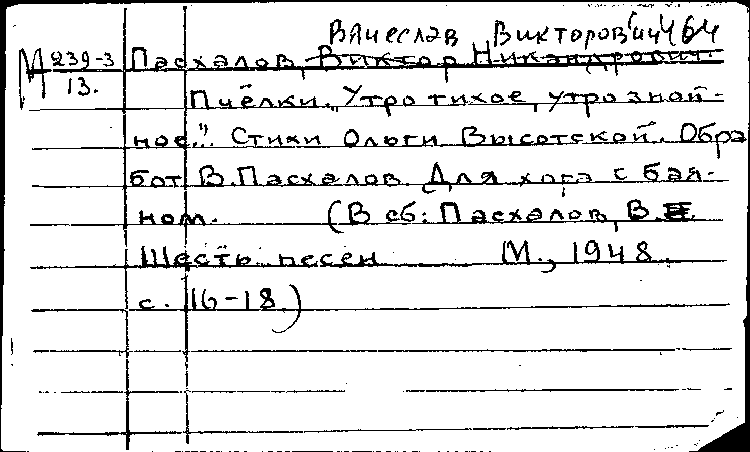 Вячеслав Викторович 464
М 239-3 Пасхалов, Виктор Никандрович.
13. Пчёлки. „Утро тихое, утро зной-
ное.." Стихи Ольги Высотской. Обра
бот. В. Пасхалов. Для хора с бая-
ном. (В сб: Пасхалов, В.
Шесть песен М., 1948.
с. 16-18.)